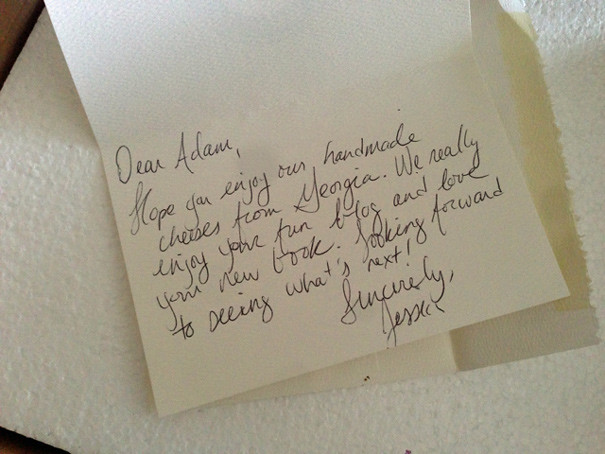 Dear Adam,
Hope you enjoy our handmade
cheeses from Georgia. We really
enjoy your fun blog and love
your new book. Looking forward
to seeing what's next!
Sincerely,
Jessica